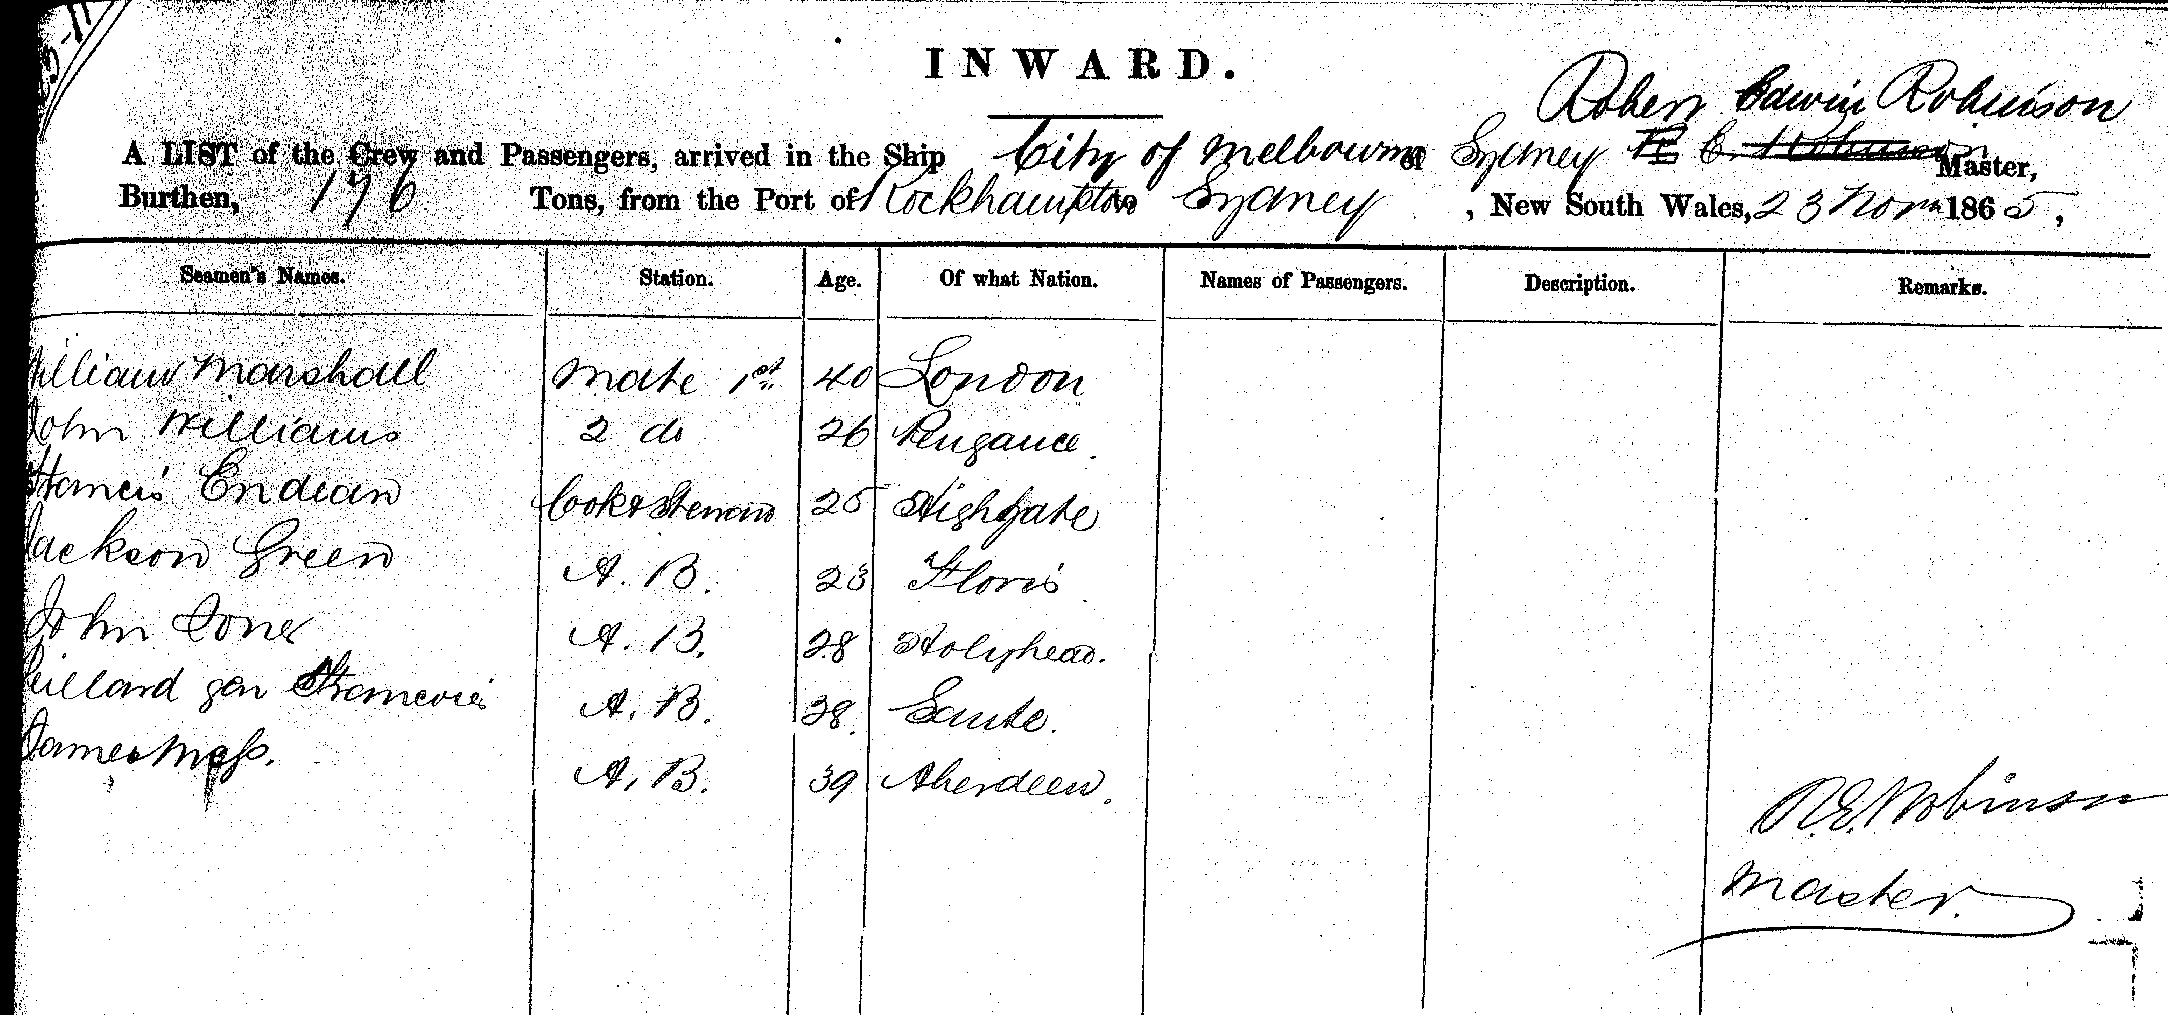 INWARD.
Robert Edwin Robinson
A LIST of the Crew and Passengers, arrived in the Ship City of Melbourne of Sydney R E. Robinson Master,
Burthen, 176 Tons, from the Port of Rockhampton to Sydney, New South Wales, 23 Novr 1865,
Seamen's Names. Station. Age. Of what Nation. Names of Passengers. Description. Remarks.
William Marshall Mate 1st. 40 London
John Williams 2 do 26 Penzance.
Francis Endean Cook & Steward 25 Highgate
Jackson Green A. B. 23 Floris
John Jones A. B. 28 Holyhead.
A. B. 38.
James Moss. A. B. 39 Aberdeen.
R. E. Robinson
Master.